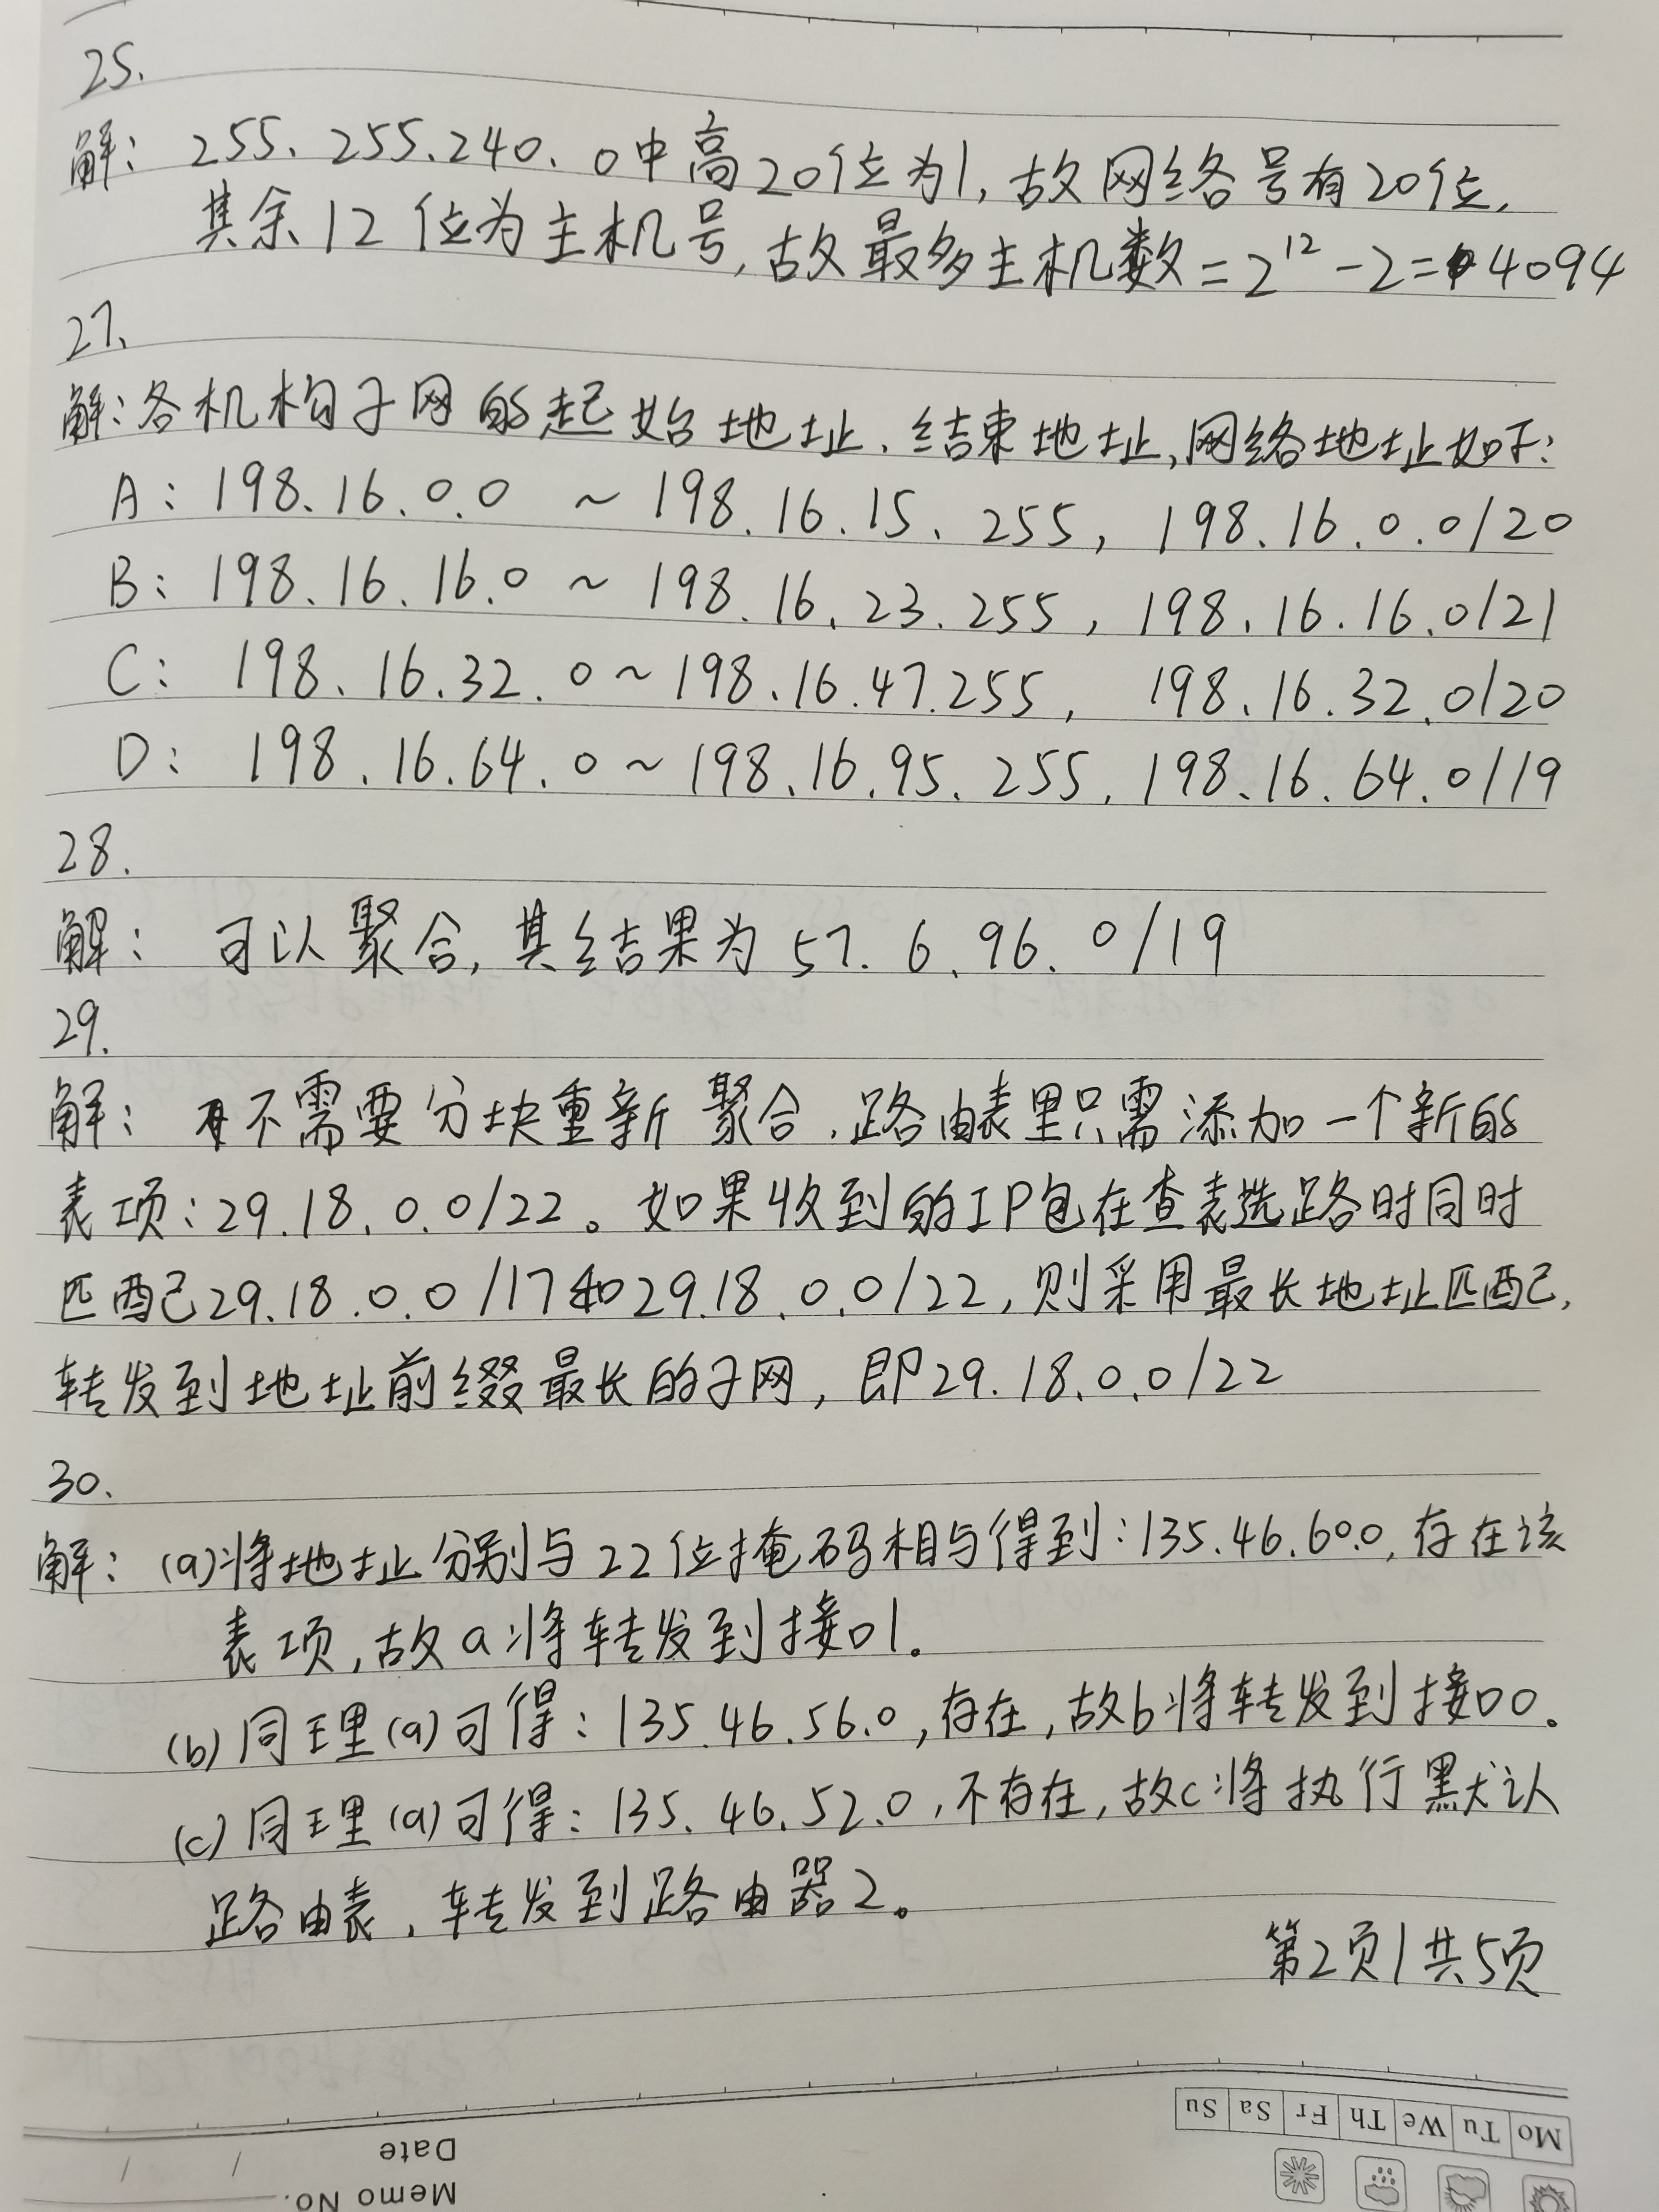 25.
解: 255.255.240.0中高20位为1,故网络号有20位,
其余12位为主机号,故最多主机数=2¹²-2=4094
27.
解:各机构子网的起始地址.结束地址,网络地址如下:
A: 198.16.0.0 ~ 198.16.15.255, 198.16.0.0/20
B: 198.16.16.0 ~ 198.16.23.255, 198.16.16.0/21
C: 198.16.32.0 ~ 198.16.47.255, 198.16.32.0/20
D: 198.16.64.0 ~ 198.16.95.255, 198.16.64.0/19
28.
解: 可以聚合,其结果为57.6.96.0/19
29.
解: 不需要分块重新聚合.路由表里只需添加一个新的
表项:29.18.0.0/22。如果收到的IP包在查表选路时同时
匹配29.18.0.0/17和29.18.0.0/22,则采用最长地址匹配,
转发到地址前缀最长的子网,即29.18.0.0/22
30.
解: (a)将地址分别与22位掩码相与得到:135.46.60.0,存在该
表项,故a将转发到接口1。
(b)同理(a)可得:135.46.56.0,存在,故b将转发到接口0。
(c)同理(a)可得:135.46.52.0,不存在,故c将执行默认
路由表,转发到路由器2。
第2页/共5页
Mo Tu We Th Fr Sa Su
Date / /
Memo No.